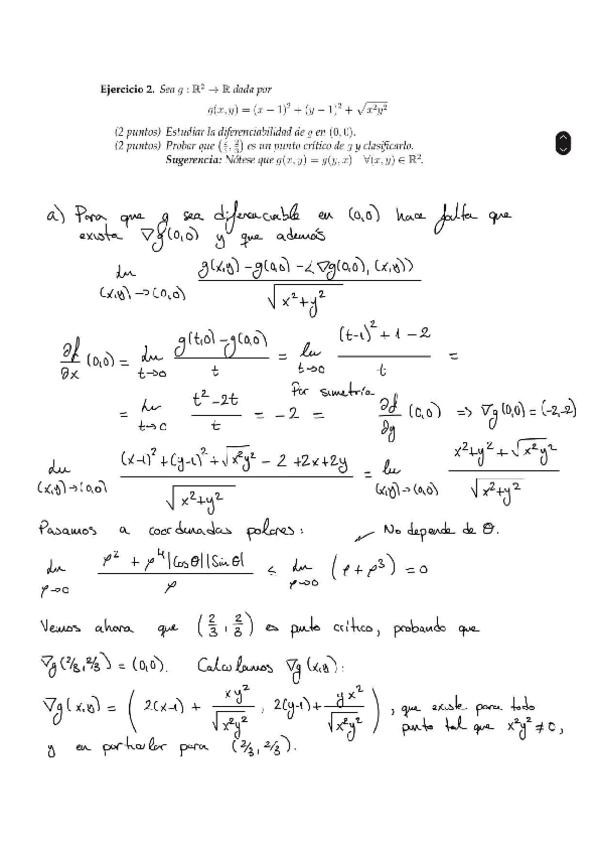 Ejercicio 2. Sea g : ℝ² → ℝ dada por
g(x, y) = (x − 1)² + (y − 1)² + √(x²y²)
(2 puntos) Estudiar la diferenciabilidad de g en (0, 0).
(2 puntos) Probar que (2/3, 2/3) es un punto crítico de g y clasificarlo.
Sugerencia: Nótese que g(x, y) = g(y, x) ∀(x, y) ∈ ℝ².
a) Para que g sea diferenciable en (0,0) hace falta que
exista ∇g(0,0) y que además
lim (x,y)→(0,0) (g(x,y) − g(0,0) − <∇g(0,0), (x,y)>) / √(x²+y²)
∂f/∂x (0,0) = lim t→0 (g(t,0) − g(0,0)) / t = lim t→0 ((t−1)² + 1 − 2) / t =
= lim t→0 (t² − 2t) / t = −2 = Por simetría ∂f/∂y (0,0) ⇒ ∇g(0,0) = (−2,−2)
lim (x,y)→(0,0) ((x−1)² + (y−1)² + √(x²y²) − 2 + 2x + 2y) / √(x²+y²) = lim (x,y)→(0,0) (x² + y² + √(x²y²)) / √(x²+y²)
Pasamos a coordenadas polares: No depende de θ.
lim ρ→0 (ρ² + ρ⁴|Cosθ||Sinθ|) / ρ ≤ lim ρ→0 (ρ + ρ³) = 0
Vemos ahora que (2/3, 2/3) es punto crítico, probando que
∇g(2/3, 2/3) = (0,0). Calculamos ∇g(x,y):
∇g(x,y) = (2(x−1) + xy²/√(x²y²), 2(y−1) + yx²/√(x²y²)), que existe para todo
punto tal que x²y² ≠ 0,
y en particular para (2/3, 2/3).